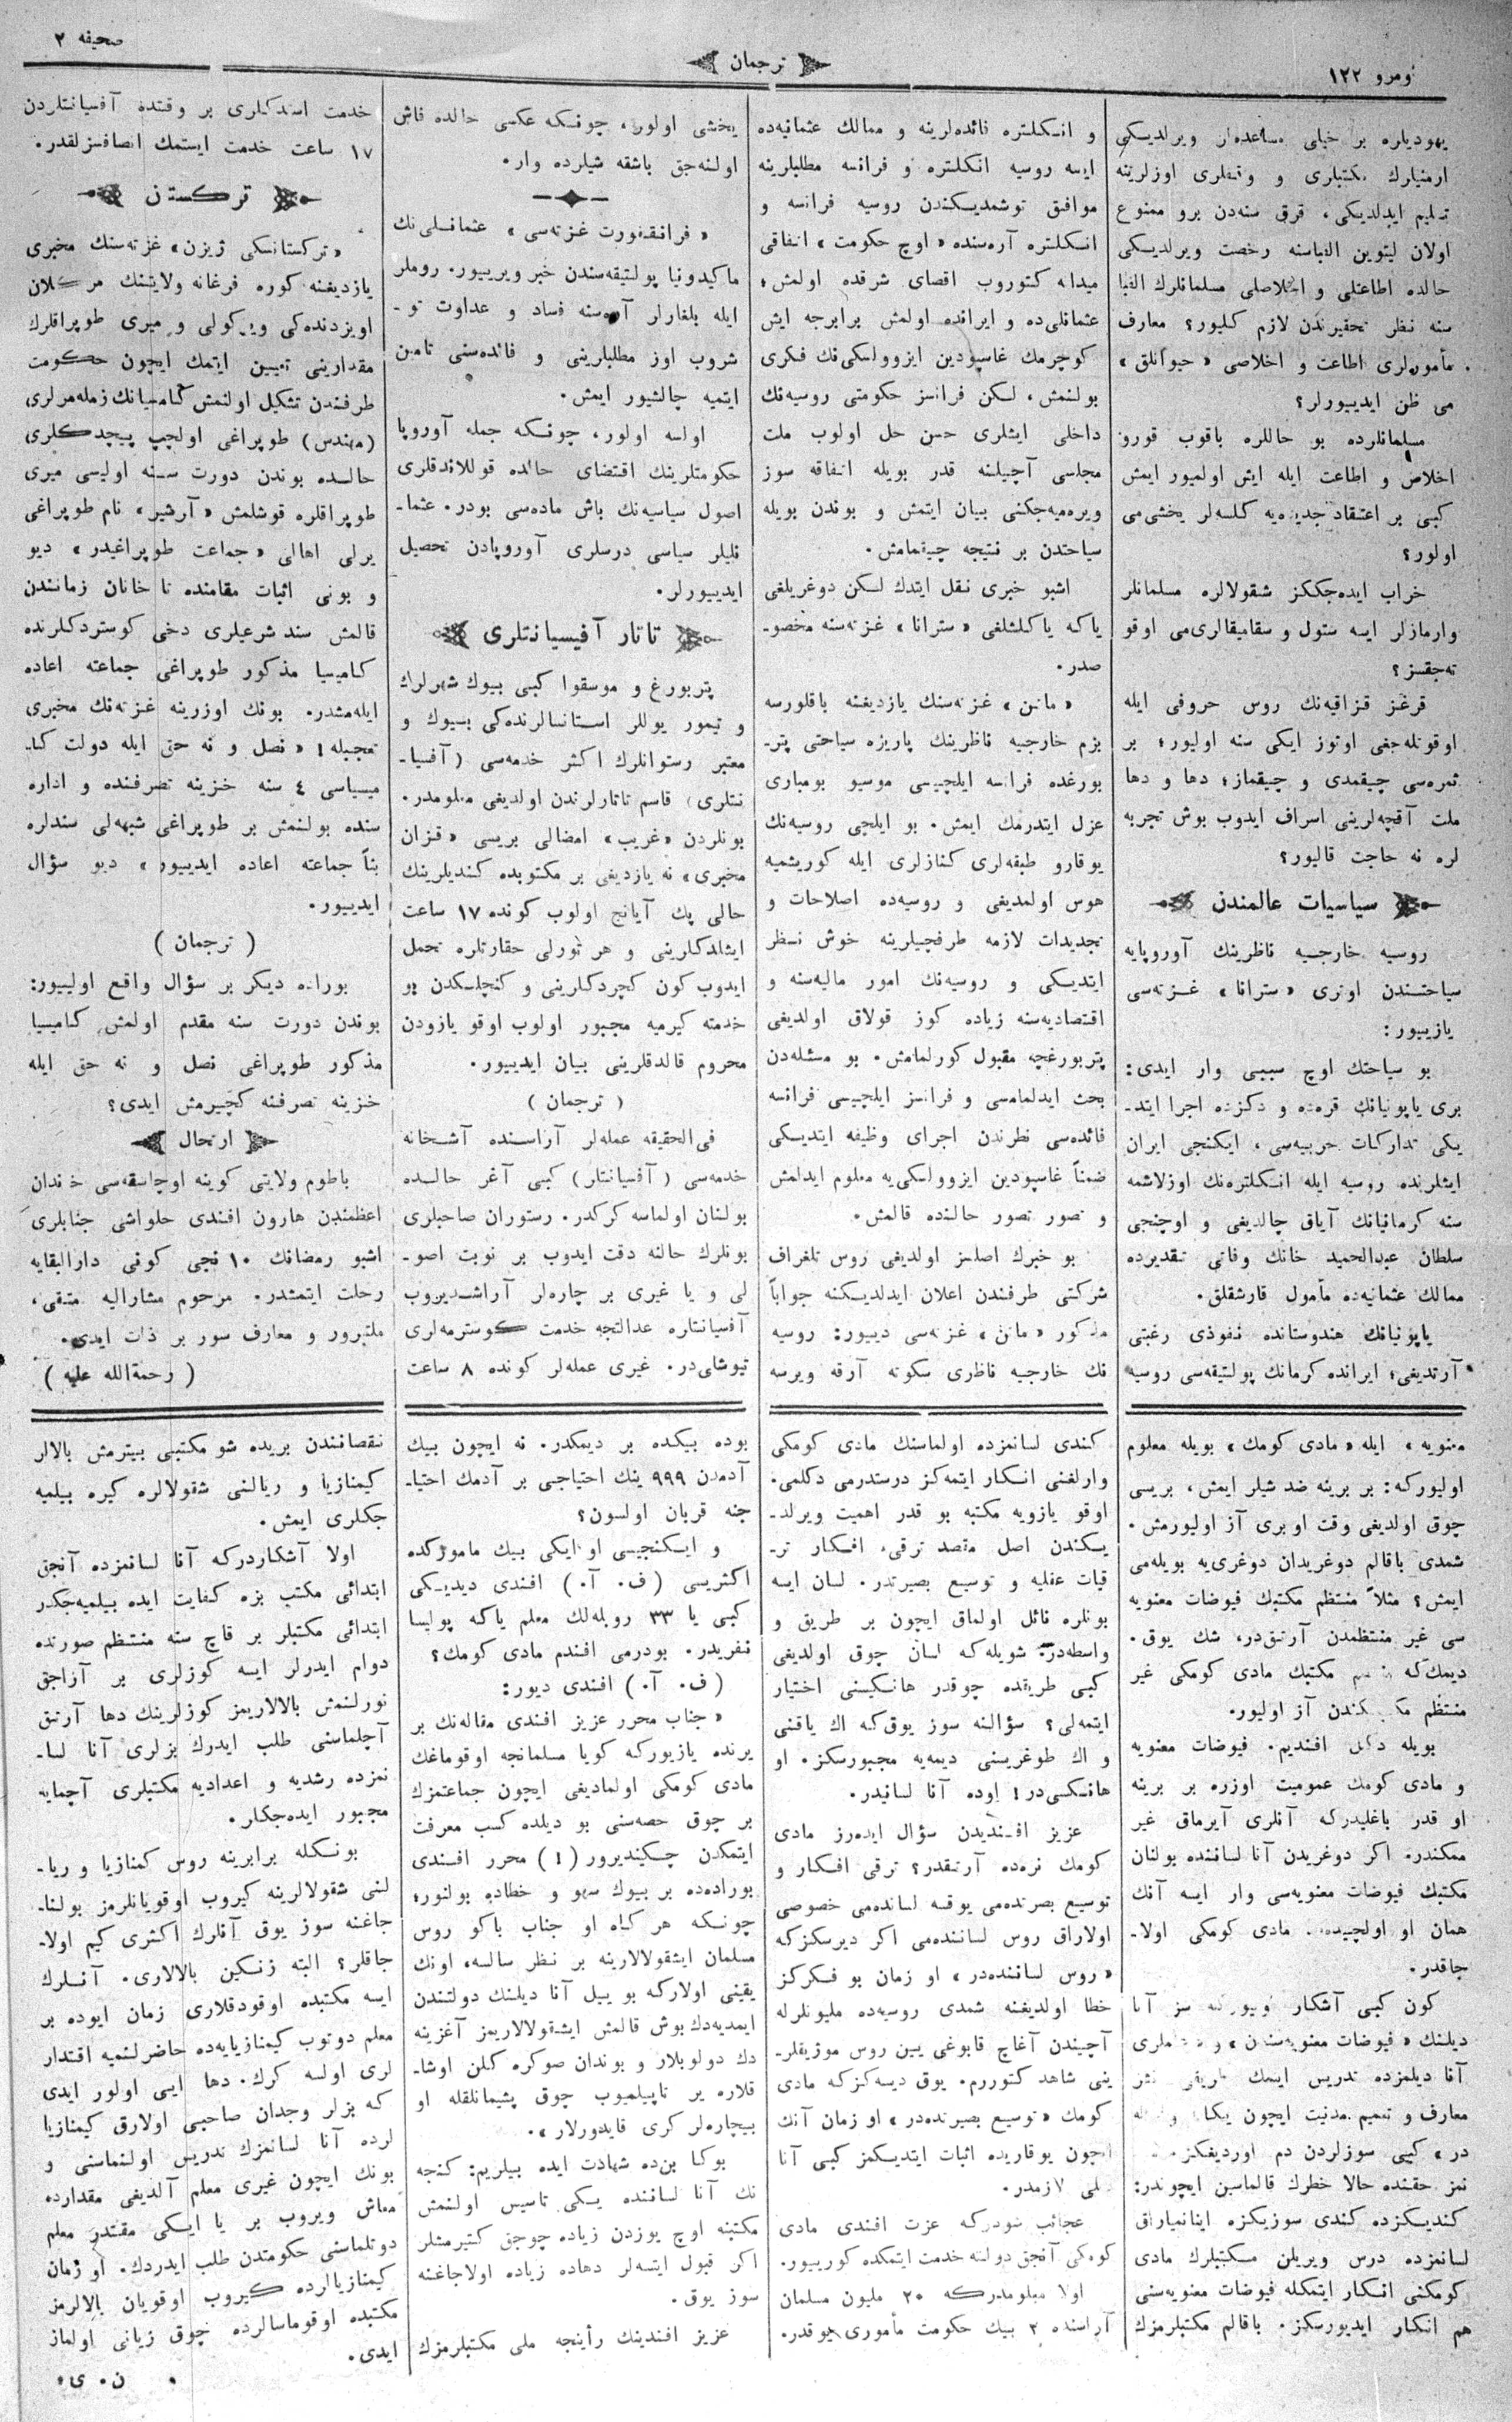 نومرو ١٢٢
ترجمان
صحيفه ٢
يهوديلره بر خيلى مساعده‌لر ويرلديكى
ارمنيلرك مكتبلرى و وقفلرى اوزلرينه
تسليم ايدلديكى، قرق سنه‌دن برو ممنوع
اولان ليتوين الفباسنه رخصت ويرلديكى
حالده اطاعتلى و اخلاصلى مسلمانلرك الفبا
سنه نظر تحقيرندن لازم كليور؟ معارف
مأمورلرى اطاعت و اخلاصى « حيوانلق »
مى ظن ايدييورلر؟
مسلمانلرده بو حاللره باقوب قورو
اخلاص و اطاعت ايله ايش اولميور ايمش
كبى بر اعتقاد جديده‌يه كلسه‌لر يخشى‌مى
اولور؟
خراب ايده‌جككز شقولالره مسلمانلر
وارمازلر ايسه ستول و سقاميقالرى‌مى اوقو
ته‌جقسز؟
قرغز قزاقيه‌نك روس حروفى ايله
اوقوتله‌جغى اوتوز ايكى سنه اوليور؛ بر
ثمره‌سى چيقمدى و چيقماز؛ دها و دها
ملت آقچه‌لرينى اسراف ايدوب بوش تجربه
لره نه حاجت قاليور؟
سياسيات عالمندن
روسيه خارجيه ناظرينك آوروپايه
سياحتندن اوترى « سترانا » غزته‌سى
يازييور:
بو سياحتك اوچ سببى وار ايدى:
برى ياپونيانك قره‌ده و دكزده اجرا ايتد-
يكى تداركات حربيه‌سى، ايكنجى ايران
ايشلرنده روسيه ايله انكلتره‌نك اوزلاشمه
سنه كرمانيانك آياق چالديغى و اوچنجى
سلطان عبدالحميد خانك وفاتى تقديرده
ممالك عثمانيه‌ده مأمول قارشقلق.
ياپونيانك هندوستانده نفوذى رغبتى
آرتديغى؛ ايرانده كرمانك پولتيقه‌سى روسيه
و انكلتره فائده‌لرينه و ممالك عثمانيه‌ده
ايسه روسيه انكلتره و فرانسه مطلبلرينه
موافق توشمديكندن روسيه فرانسه و
انكلتره آره‌سنده « اوچ حكومت » اتفاقى
ميدانه كتوروب اقصاى شرقده اولمش؛
عثمانلى‌ده و ايرانده اولمش برابرجه ايش
كوچرمك غاسپودين ايزوولسكى‌نك فكرى
بولنمش، لكن فرانسز حكومتى روسيه‌نك
داخلى ايشلرى حسن حل اولوب ملت
مجلسى آچيلنه قدر بويله اتفاقه سوز
ويره‌ميه‌جكنى بيان ايتمش و بوندن بويله
سياحتدن بر نتيجه چيقمامش.
اشبو خبرى نقل ايتدك لكن دوغريلغى
ياكه ياكلشلغى « سترانا » غزته‌سنه مخصو-
صدر.
« ماتن » غزته‌سنك يازديغنه باقلورسه
بزم خارجيه ناظرينك پاريزه سياحتى پتر-
بورغده فرانسه ايلچيسى موسيو بومپارى
عزل ايتدرمك ايمش. بو ايلچى روسيه‌نك
يوقارو طبقه‌لرى كنازلرى ايله كوريشميه
هوس اولمديغى و روسيه‌ده اصلاحات و
تجديدات لازمه طرفچيلرينه خوش نظر
ايتديكى و روسيه‌نك امور ماليه‌سنه و
اقتصاديه‌سنه زياده كوز قولاق اولديغى
پتربورغچه مقبول كورلمامش. بو مسئله‌دن
بحث ايدلمامسى و فرانسز ايلچيسى فرانسه
فائده‌سى نظرندن اجراى وظيفه ايتديكى
ضمناً غاسپودين ايزوولسكى‌يه معلوم ايدلمش
و تصور تصور حالنده قالمش.
بو خبرك اصلسز اولديغى روس تلغراف
شركتى طرفندن اعلان ايدلديكنه جواباً
مذكور « ماتن » غزته‌سى دييور: روسيه
نك خارجيه ناظرى سكوته آرقه ويرسه
يخشى اولور، چونكه عكسى حالده فاش
اولنه‌جق باشقه شيلرده وار.
« فرانقفورت غزته‌سى » عثمانلى‌نك
ماكيدونيا پولتيقه‌سندن خبر ويرييور. روملر
ايله بلغارلر آره‌سنه فساد و عداوت تو-
شروب اوز مطلبلرينى و فائده‌سنى تامين
ايتميه چالشيور ايمش.
اولسه اولور، چونكه جمله آوروپا
حكومتلرينك اقتضاى حالده قوللاندقلرى
اصول سياسيه‌نك باش ماده‌سى بودر. عثما-
نليلر سياسى درسلرى آوروپادن تحصيل
ايدييورلر.
تاتار آفيسيانتلرى
پتربورغ و موسقوا كبى بيوك شهرلرك
و تيمور يوللر استانسالرنده‌كى بيوك و
معتبر رستوانلرك اكثر خدمه‌سى (آفسيا-
نتلرى) قاسم تاتارلرندن اولديغى معلومدر.
بونلردن « غريب » امضالى بريسى « قزان
مخبرى » نه يازديغى بر مكتوبده كنديلرينك
حالى پك آيانج اولوب كونده ١٧ ساعت
ايشلدكلرينى و هر تورلى حقارتلره تحمل
ايدوب كون كچردكلرينى و كنچلكدن بو
خدمته كيرميه مجبور اولوب اوقو يازودن
محروم قالدقلرينى بيان ايدييور.
( ترجمان )
فى‌الحقيقه عمله‌لر آراسنده آشخانه
خدمه‌سى (آفسيانتلر) كبى آغر حالده
بولنان اولماسه كركدر. رستوران صاحبلرى
بونلرك حالنه دقت ايدوب بر نوبت اصو-
لى و يا غيرى بر چاره‌لر آراشديروب
آفسيانتلره عدالتچه خدمت كوسترمه‌لرى
تيوشلى‌در. غيرى عمله‌لر كونده ٨ ساعت
خدمت استدكلرى بر وقتده آفسيانتلردن
١٧ ساعت خدمت ايستمك انصافسزلقدر.
تركستان
« تركستانسكى ژيزن » غزته‌سنك مخبرى
يازديغنه كوره فرغانه ولايتنك مركلان
اويزدنده‌كى ويركولى و ميرى طوپراقلرك
مقدارينى تعيين ايتمك ايچون حكومت
طرفندن تشكيل اولنمش كاميسيانك زمله‌مرلرى
(مهندس) طوپراغى اولچپ پيچدكلرى
حالده بوندن دورت سنه اوليسى ميرى
طوپراقلره قوشلمش « آرشير » نام طوپراغى
يرلى اهالى « جماعت طوپراغيدر » ديو
و بونى اثبات مقامنده تا خانان زمانندن
قالمش سند شرعيلرى دخى كوستردكلرنده
كاميسيا مذكور طوپراغى جماعته اعاده
ايله‌مشدر. بونك اوزرينه غزته‌نك مخبرى
تعجبله! « نصل و نه حق ايله دولت كا-
ميسياسى ٤ سنه خزينه تصرفنده و اداره
سنده بولنمش بر طوپراغى شبهه‌لى سندلره
بناً جماعته اعاده ايدييور » ديو سؤال
ايدييور.
( ترجمان )
بوراده ديكر بر سؤال واقع اوليیور:
بوندن دورت سنه مقدم اولمش كاميسيا
مذكور طوپراغى نصل و نه حق ايله
خزينه تصرفنه كچيرمش ايدى؟
ارتحال
باطوم ولايتى كوينه اوچاسقه‌سى خندان
اعظمندن هارون افندى حلواشى جنابلرى
اشبو رمضانك ١٠ نجى كونى دارالبقايه
رحلت ايتمشدر. مرحوم مشاراليه متقى،
ملتپرور و معارف سور بر ذات ايدى.
( رحمة‌الله عليه )
معنويه » ايله « مادى كومك » بويله معلوم
اوليوركه: بر برينه ضد شيلر ايمش، بريسى
چوق اولديغى وقت اوبرى آز اوليورمش.
شمدى باقالم دوغريدان دوغرى‌يه بويله‌مى
ايمش؟ مثلاً منتظم مكتبك فيوضات معنويه
سى غير منتظمدن آرتق‌در، شك يوق.
ديمك‌كه منتظم مكتبك مادى كومكى غير
منتظم مكتبكندن آز اوليور.
بويله دكل افنديم. فيوضات معنويه
و مادى كومك عموميت اوزره بر برينه
او قدر باغليدركه آنلرى آيرماق غير
ممكندر. اكر دوغريدن آنا لساننده بولنان
مكتبك فيوضات معنويه‌سى وار ايسه آنك
همان او اولچيده مادى كومكى اولا-
جاقدر.
كون كبى آشكار سز آنا
ديلنك « فيوضات معنويه‌سندن » و
آنا ديلمزده تدريس ايتمك نشر
معارف و تعميم مدنيت ايچون
در » كبى سوزلردن دم اورديغكز
نمز حقنده حالا خطرك قالماسين ايچوندر:
كنديكزده كندى سوزيكزه اينانمياراق
لسانمزده درس ويريلن مكتبلرك مادى
كومكنى انكار ايتمكله فيوضات معنويه‌سنى
هم انكار ايديورسكز. باقالم مكتبلرمزك
كندى لسانمزده اولماسنك مادى كومكى
وارلغنى انكار ايتمه‌كز درستدرمى دكلمى.
اوقو يازويه مكتبه بو قدر اهميت ويرلد-
يكندن اصل مقصد ترقىء افكار تر-
قيات عقليه و توسيع بصيرتدر. لسان ايسه
بونلره نائل اولماق ايچون بر طريق و
واسطه‌در. شويله‌كه لسان چوق اولديغى
كبى طريقده چوقدر هانكيسنى اختيار
ايتمه‌لى؟ سؤالنه سوز يوق‌كه اك ياقنى
و اك طوغريسنى ديمه‌يه مجبورسكز. او
هانكسى‌در! اوده آنا لسانيدر.
عزيز افنديدن سؤال ايده‌رز مادى
كومك نره‌ده آرتقدر؟ ترقى افكار و
توسيع بصرتده‌مى يوقسه لسانده‌مى خصوصى
اولاراق روس لساننده‌مى اكر ديرسكزكه
« روس لساننده‌در » او زمان بو فكركز
خطا اولديغنه شمدى روسيه‌ده مليونلرله
آچيندن آغاچ قابوغى يين روس موژيقلر-
ينى شاهد كتوررم. يوق ديسه‌كزكه مادى
كومك « توسيع بصيرتده‌در » او زمان آنك
ايچون يوقاريده اثبات ايتديكمز كبى آنا
ديلى لازمدر.
عجائب شودركه عزت افندى مادى
كومكى آنجق دولته خدمت ايتمكده كوريیور.
اولا معلومدركه ٢٠ مليون مسلمان
آراسنده ٢ بيك حكومت مأمورى يوقدر.
بوده بيكده بر ديمكدر. نه ايچون بيك
آدمدن ٩٩٩ ينك احتياجى بر آدمك احتيا-
جنه قربان اولسون؟
و ايكنجيسى او ايكى بيك ماموركده
اكثريسى (ف. آ.) افندى ديديكى
كبى يا ٣٣ روبله‌لك معلم ياكه پوليسا
نفريدر. بودرمى افندم مادى كومك؟
(ف. آ.) افندى ديور:
« جناب محرر عزيز افندى مقاله‌نك بر
يرنده يازيوركه كويا مسلمانجه اوقوماغك
مادى كومكى اولماديغى ايچون جماعتمزك
بر چوق حصه‌سنى بو ديلده كسب معرفت
ايتمكدن چكينديرور (!) محرر افندى
بوراده‌ده بر بيوك سهو و خطاده بولنور؛
چونكه هر كاه او جناب باكو روس
مسلمان ايشقولالارينه بر نظر سالسه، اونك
يقينى اولاركه بو ييل آنا ديلنك دولتندن
ايمديه‌دك بوش قالمش ايشقولالاريمز آغزينه
دك دولوبلار و بوندان صوكره كلن اوشا-
قلاره ير تاپيلميوب چوق پشيمانلقله او
بيچاره‌لر كرى قايدورلار ».
بوكا بن‌ده شهادت ايده بيلريم: كنجه
نك آنا لساننده يكى تاسيس اولنمش
مكتبنه اوچ يوزدن زياده چوجق كتيرمشلر
اكر قبول ايتسه‌لر دهاده زياده اولاجاغنه
سوز يوق.
عزيز افندينك رأينجه ملى مكتبلرمزك
نقصانندن بريده شو مكتبى بيترمش بالالر
كيمنازيا و ريالنى شقولالره كيره بيلميه
جكلرى ايمش.
اولا آشكاردركه آنا لسانمزده آنجق
ابتدائى مكتب بزه كفايت ايده بيلميه‌جكدر
ابتدائى مكتبلر بر قاچ سنه منتظم صورتده
دوام ايدرلر ايسه كوزلرى بر آزاجق
نورلنمش بالالاريمز كوزلرينك دها آرتق
آچلماسنى طلب ايدرك بزلرى آنا لسا-
نمزده رشديه و اعداديه مكتبلرى آچمايه
مجبور ايده‌جكلر.
بونكله برابرينه روس كمنازيا و ريا-
لنى شقولالرينه كيروب اوقويانلرمز بولنا-
جاغنه سوز يوق آنلرك اكثرى كيم اولا-
جاقلر؟ البته زنكين بالالارى. آنلرك
ايسه مكتبده اوقودقلارى زمان ايوده بر
معلم دوتوب كيمنازيايه‌ده حاضرلنميه اقتدار
لرى اولسه كرك. دها ايى اولور ايدى
كه بزلر وجدان صاحبى اولارق كيمنازيا
لرده آنا لسانمزك تدريس اولنماسنى و
بونك ايچون غيرى معلم آلديغى مقدارده
معاش ويروب بر يا ايكى مقتدر معلم
دوتلماسنى حكومتدن طلب ايدردك. او زمان
كيمنازيالرده كيروب اوقويان بالالرمز
مكتبده اوقوماسالرده چوق زيانى اولماز
ايدى.
ن. ى.